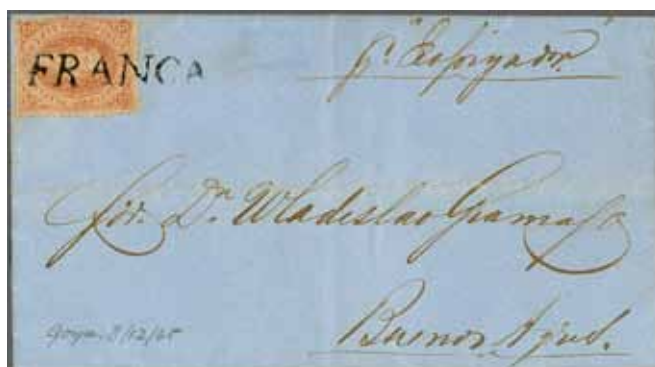 FRANCA
Sor. Dn. Wladislao Gramajo
Buenos Ayres.
Goya. 3/12/65